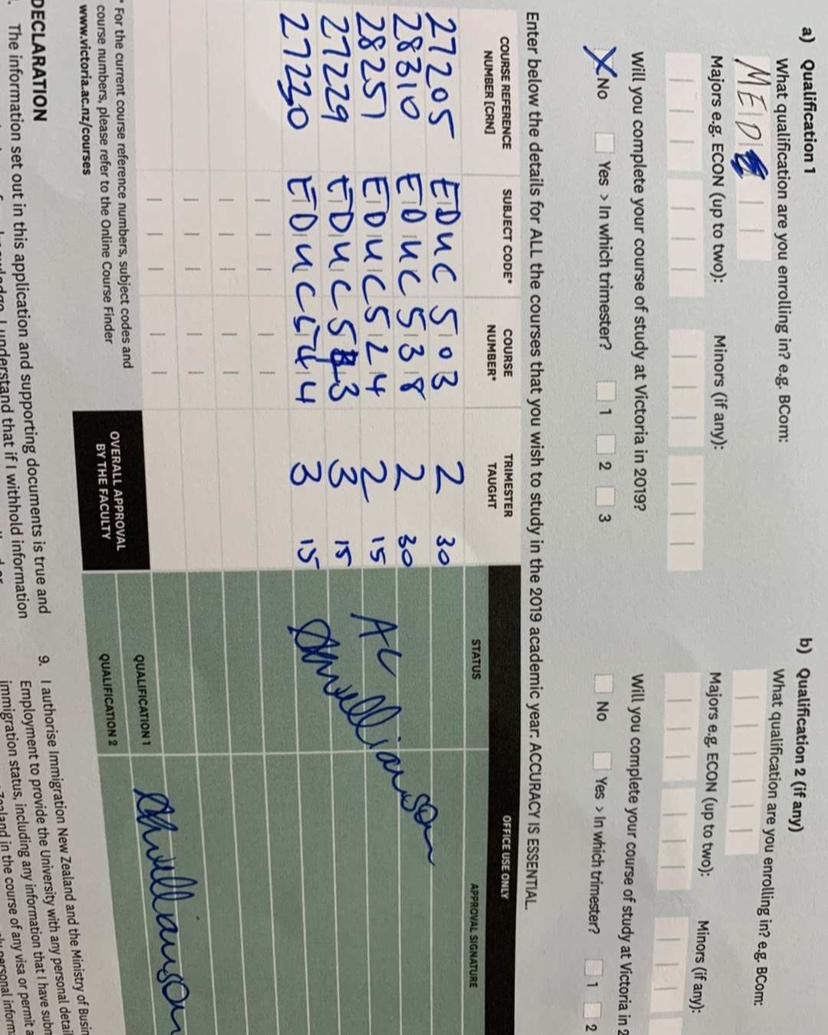 a) Qualification 1
What qualification are you enrolling in? e.g. BCom:
MED
Majors e.g. ECON (up to two):
Minors (if any):
Will you complete your course of study at Victoria in 2019?
No Yes > In which trimester? 1 2 3
b) Qualification 2 (if any)
What qualification are you enrolling in? e.g. BCom:
Majors e.g. ECON (up to two):
Minors (if any):
Will you complete your course of study at Victoria in 2
No Yes > In which trimester? 1 2
Enter below the details for ALL the courses that you wish to study in the 2019 academic year. ACCURACY IS ESSENTIAL.
OFFICE USE ONLY
COURSE REFERENCE NUMBER [CRN] SUBJECT CODE* COURSE NUMBER* TRIMESTER TAUGHT STATUS APPROVAL SIGNATURE
27205 EDUC 503 2 30
28310 EDUC 538 2 30
28251 EDUC 524 2 15
27229 EDUC 5 3 3 15
27230 EDUC 544 3 15
AC
* For the current course reference numbers, subject codes and
course numbers, please refer to the Online Course Finder
www.victoria.ac.nz/courses
OVERALL APPROVAL
BY THE FACULTY
QUALIFICATION 1
QUALIFICATION 2
DECLARATION
The information set out in this application and supporting documents is true and
understand that if I withhold information
9. I authorise Immigration New Zealand and the Ministry of Busin
Employment to provide the University with any personal detail
immigration status, including any information that I have subm
Zealand in the course of any visa or permit a